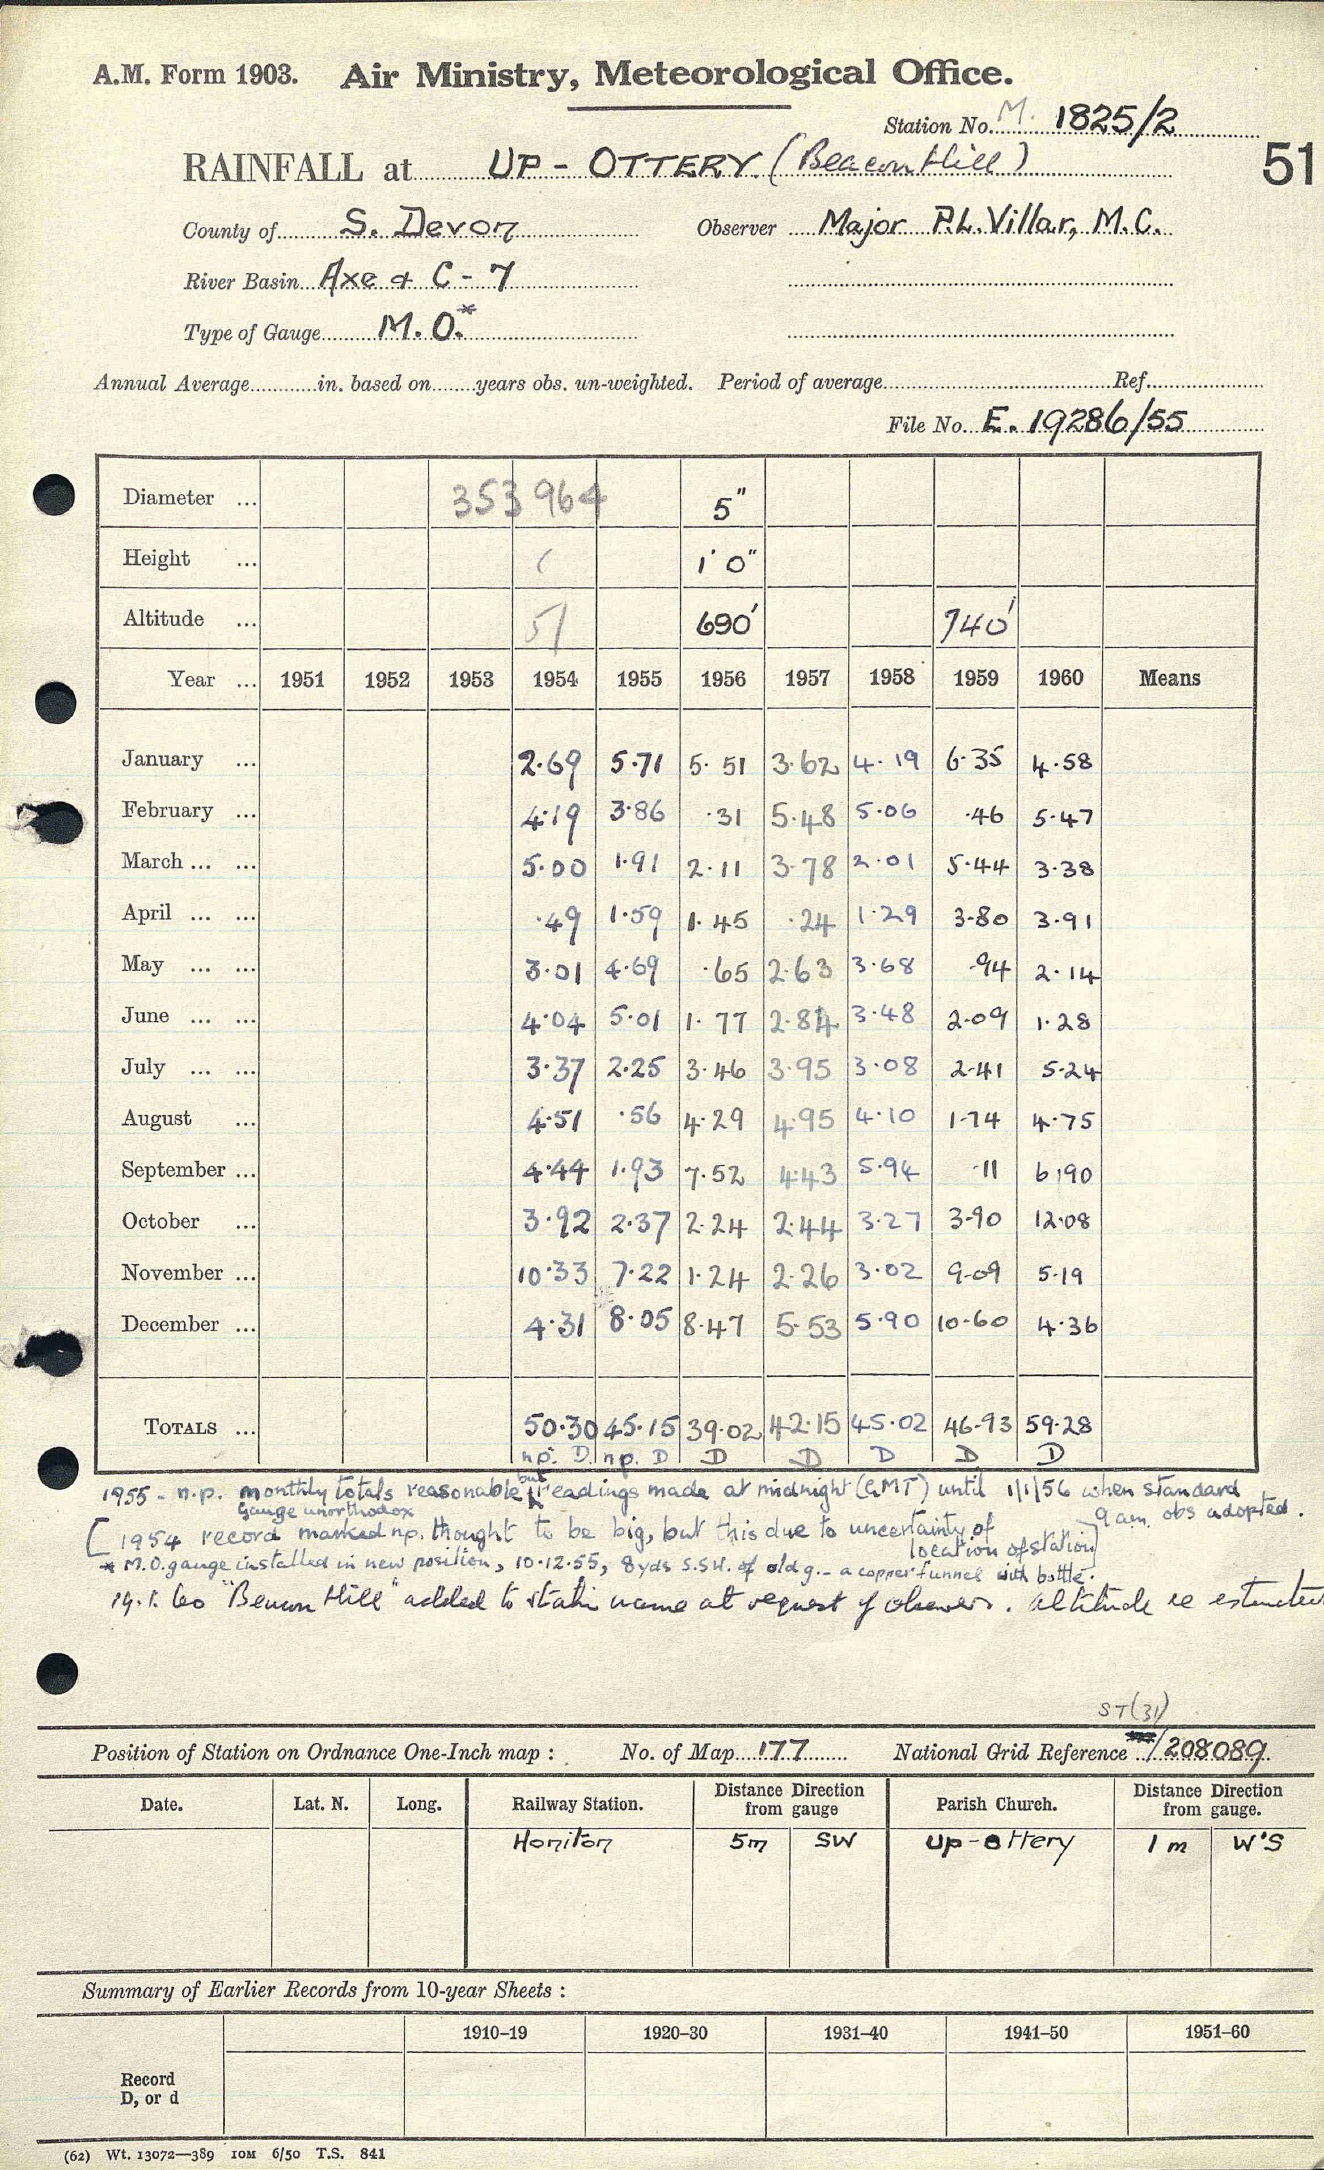 A.M. Form 1903. Air Ministry, Meteorological Office.
Station No. M. 1825/2
RAINFALL at UP - OTTERY (Beacon Hill)
51
County of S. Devon Observer Major P.L. Villar, M.C.
River Basin Axe & C - 7
Type of Gauge M.O.*
Annual Average in. based on years obs. un-weighted. Period of average Ref.
File No. E. 19286/55
Diameter ... 353964 5"
Height ... 1' 0"
Altitude ... 51 690' 740'
Year ... 1951 1952 1953 1954 1955 1956 1957 1958 1959 1960 Means
January ... 2·69 5·71 5·51 3·62 4·19 6·35 4·58
February ... 4·19 3·86 ·31 5·48 5·06 ·46 5·47
March ... ... 5·00 1·91 2·11 3·78 2·01 5·44 3·38
April ... ... ·49 1·59 1·45 ·24 1·29 3·80 3·91
May ... ... 3·01 4·69 ·65 2·63 3·68 ·94 2·14
June ... ... 4·04 5·01 1·77 2·84 3·48 2·09 1·28
July ... ... 3·37 2·25 3·46 3·95 3·08 2·41 5·24
August ... 4·51 ·56 4·29 4·95 4·10 1·74 4·75
September ... 4·44 1·93 7·52 4·43 5·94 ·11 6·90
October ... 3·92 2·37 2·24 2·44 3·27 3·90 12·08
November ... 10·33 7·22 1·24 2·26 3·02 9·09 5·19
December ... 4·31 8·05 8·47 5·53 5·90 10·60 4·36
TOTALS ... 50·30 45·15 39·02 42·15 45·02 46·93 59·28
n.p. D n.p. D D D D D D
1955 - n.p. monthly totals reasonable but readings made at midnight (GMT) until 1/1/56 when standard
gauge unorthodox 9 am. obs adopted.
[1954 record marked n.p. thought to be big, but this due to uncertainty of
location of station]
* M.O. gauge installed in new position, 10·12·55, 8 yds S.S.W. of old g. - a copper funnel with bottle.
19.1.60 "Beacon Hill" added to station name at request of observer. Altitude re estimated
ST(31)
Position of Station on Ordnance One-Inch map : No. of Map 177 National Grid Reference /208089
Date. Lat. N. Long. Railway Station. Distance Direction from gauge Parish Church. Distance Direction from gauge.
Honiton 5m SW Up-Ottery 1 m W'S
Summary of Earlier Records from 10-year Sheets :
1910–19 1920–30 1931–40 1941–50 1951–60
Record
D, or d
(62) Wt. 13072—389 10M 6/50 T.S. 841